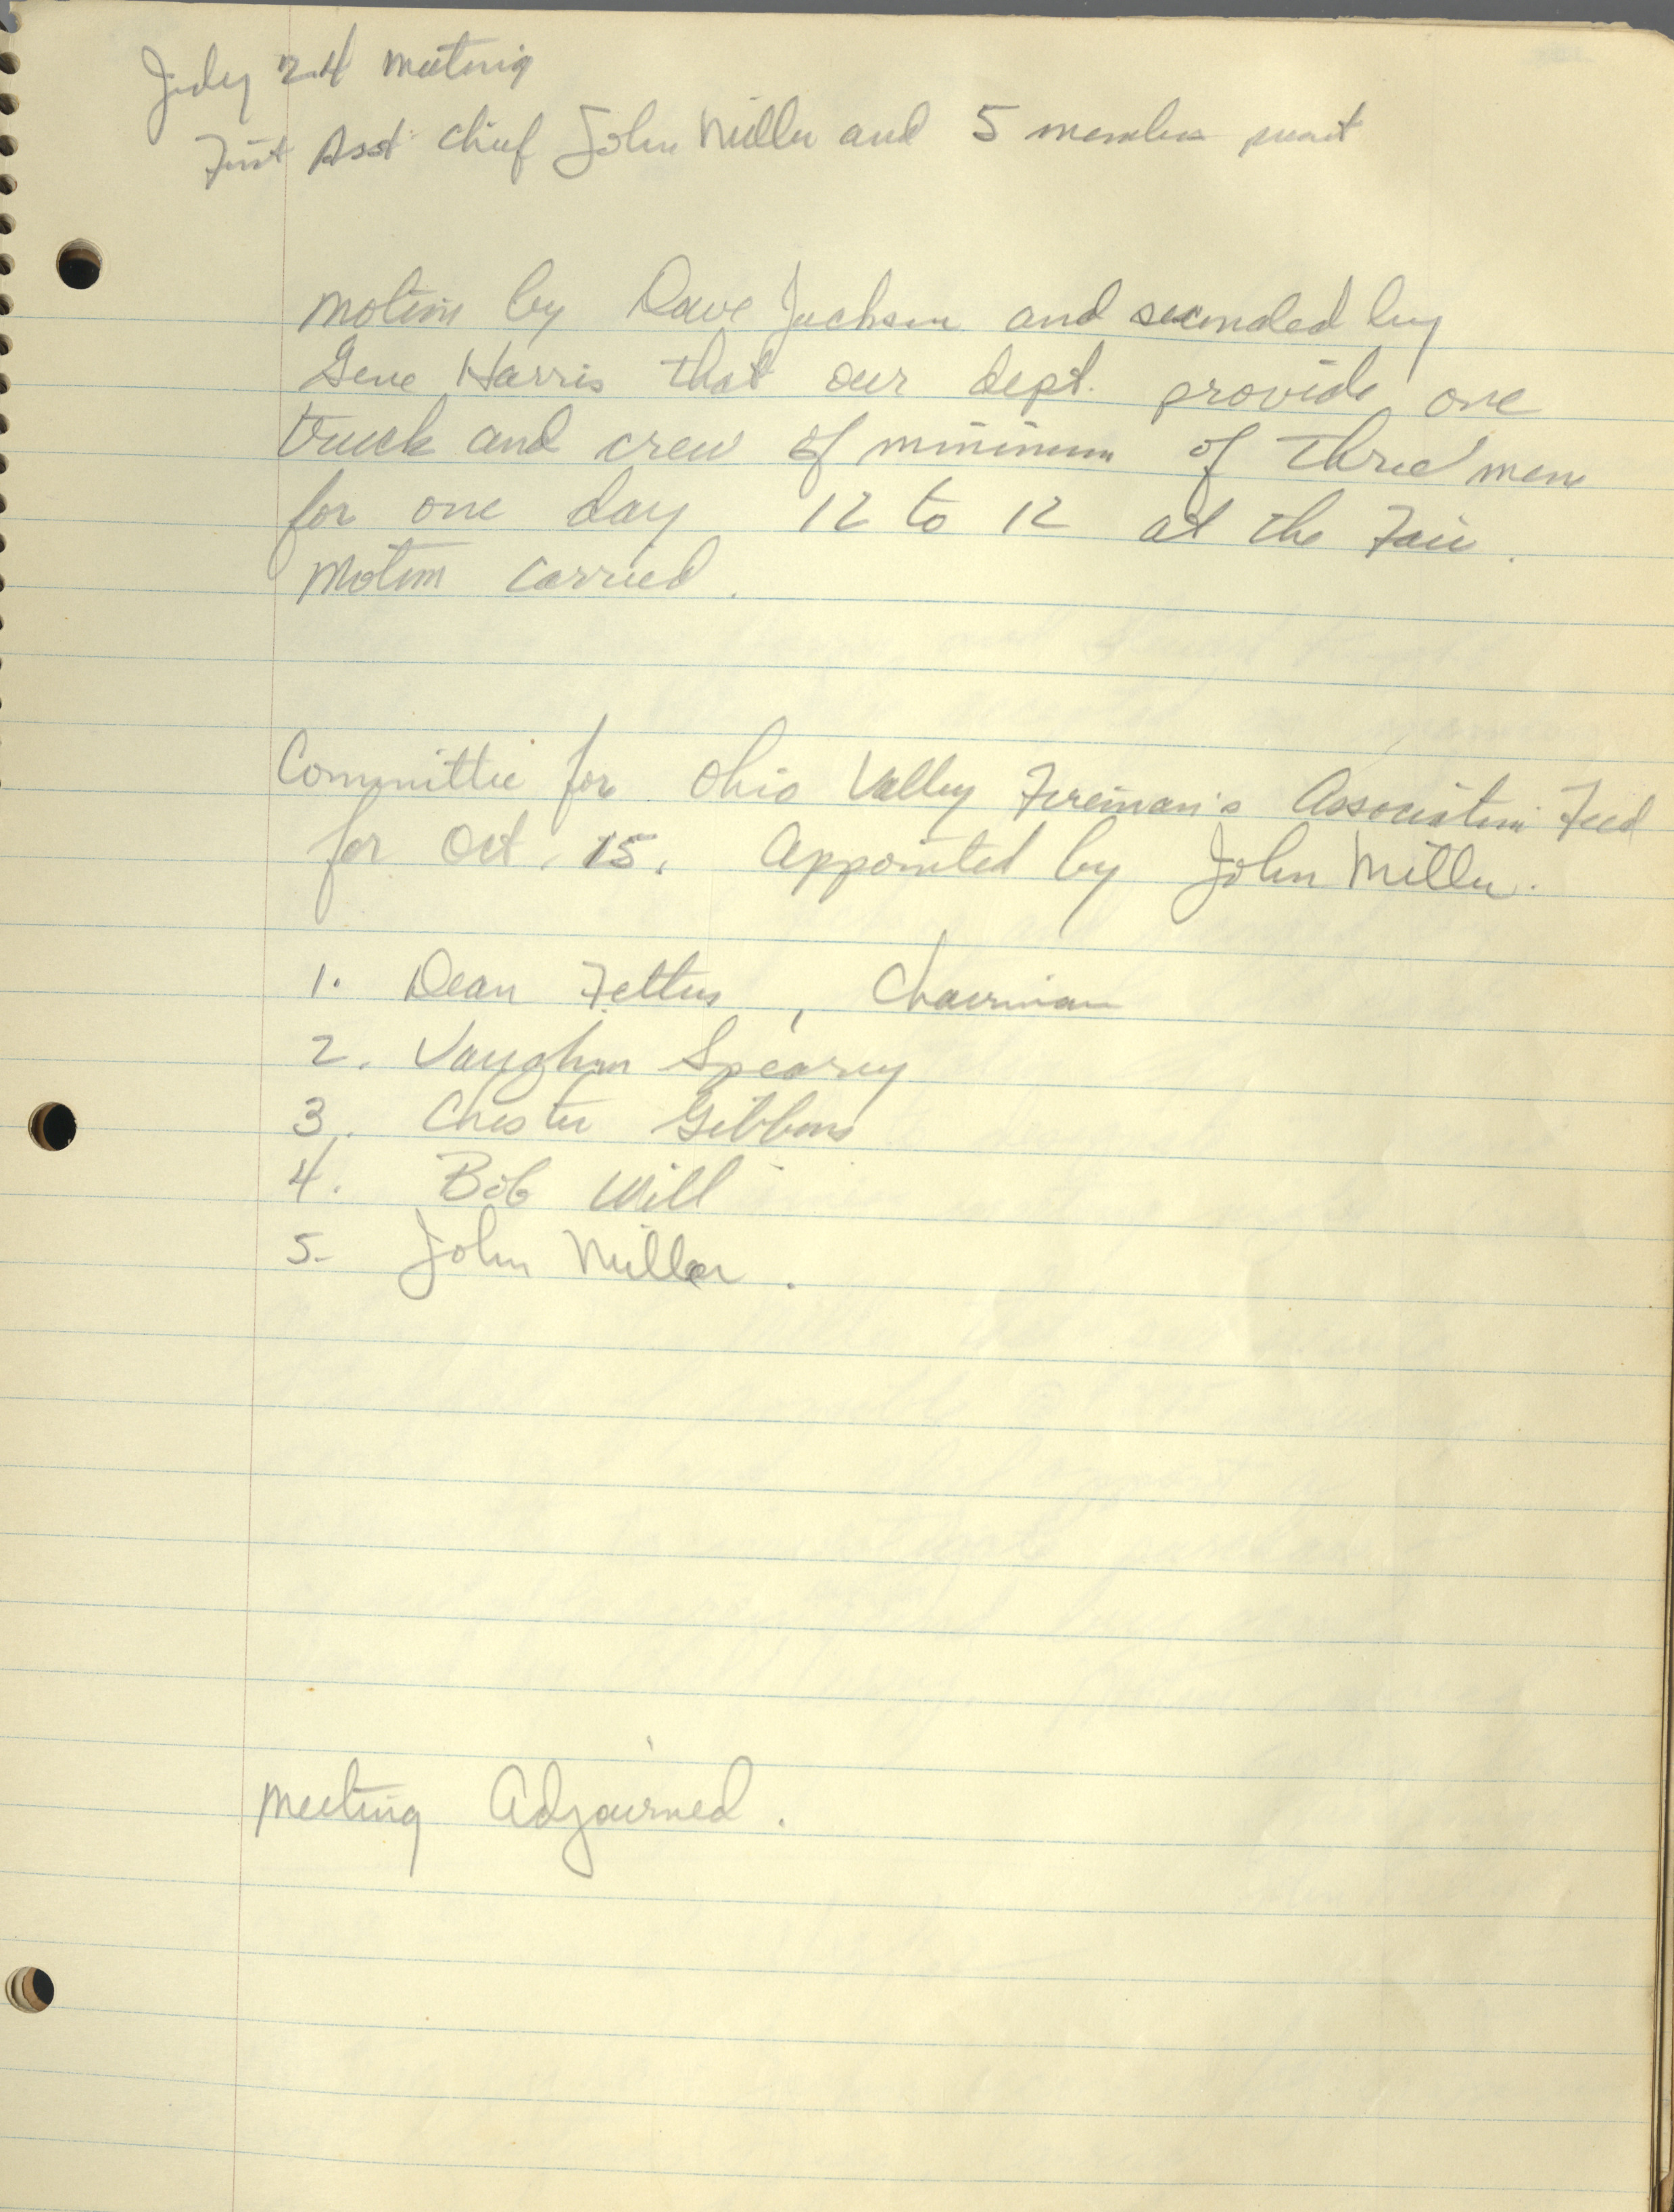 July 24 meeting
First Asst chief John Miller and 5 members present
motion by Dave Jackson and seconded by
Gene Harris that our dept. provide one
truck and crew of minimum of three men
for one day 12 to 12 at the Fair.
motion carried.
Committee for Ohio Valley Fireman's Association Feed
for Oct. 15. Appointed by John Miller.
1. Dean Fetters, Chairman
2. Vaughn Speary
3. Chester Gibbons
4. Bob Will
5. John Miller.
meeting Adjourned.